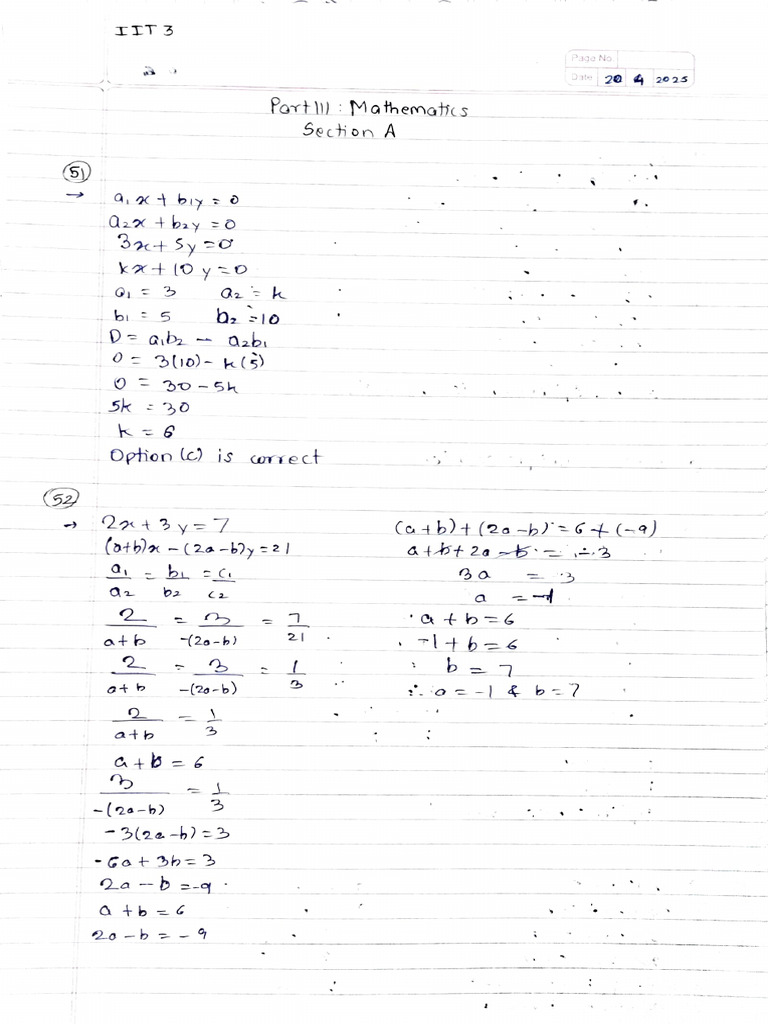 IIT 3
Page No.
Date 20 4 2025
Part III : Mathematics
Section A
51
→ a₁x + b₁y = 0
a₂x + b₂y = 0
3x + 5y = 0
kx + 10y = 0
a₁ = 3 a₂ = k
b₁ = 5 b₂ = 10
D = a₁b₂ - a₂b₁
0 = 3(10) - k(5)
0 = 30 - 5k
5k = 30
k = 6
Option (c) is correct
52
→ 2x + 3y = 7
(a+b)x - (2a-b)y = 21
a₁/a₂ = b₁/b₂ = c₁/c₂
2/(a+b) = 3/-(2a-b) = 7/21
2/(a+b) = 3/-(2a-b) = 1/3
2/(a+b) = 1/3
a + b = 6
3/-(2a-b) = 1/3
-3(2a-b) = 3
-6a + 3b = 3
2a - b = -9
a + b = 6
2a - b = -9
(a+b) + (2a-b) = 6 + (-9)
a + b + 2a - b = -3
3a = -3
a = -1
a + b = 6
-1 + b = 6
b = 7
∴ a = -1 & b = 7